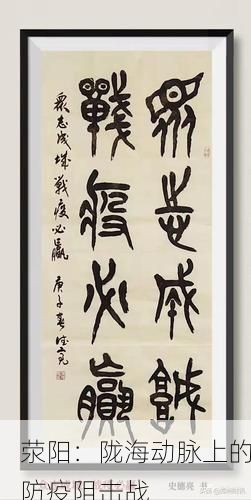 眾志成城
戰疫必贏
眾志成城戰疫必贏 庚子春德亮
荥阳：陇海动脉上的
防疫阻击战
史德亮 书